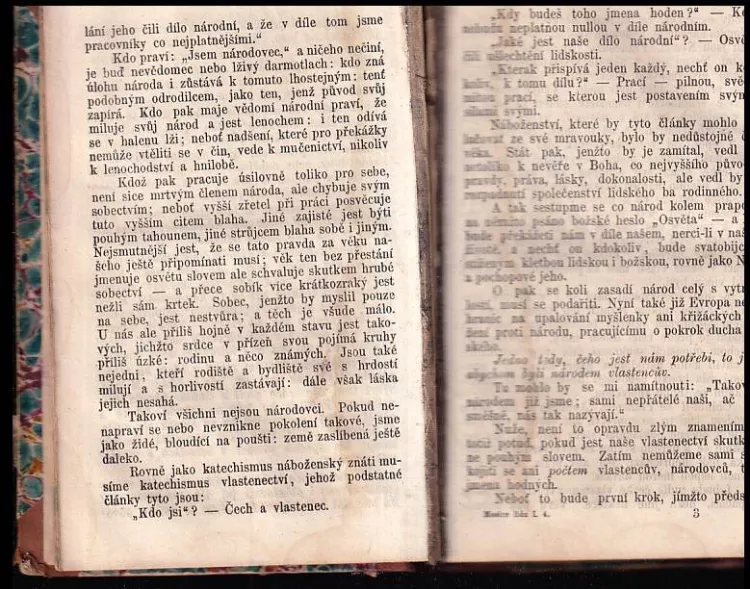 lání jeho čili dílo národní, a že v díle tom jsme
pracovníky co nejplatnějšími.“
Kdo praví: „Jsem národovec,“ a ničeho nečiní,
je buď nevědomec nebo lživý darmotlach: kdo zná
úlohu národa i zůstává k tomuto lhostejným: tenť
podobným odrodilcem, jako ten, jenž původ svůj
zapírá. Kdo pak maje vědomí národní praví, že
miluje svůj národ a jest lenochem: i ten odívá
se v halenu lži; neboť nadšení, které pro překážky
nemůže vtěliti se v čin, vede k mučenictví, nikoliv
k lenochodství a hnilobě.
Kdož pak pracuje úsilovně toliko pro sebe,
není sice mrtvým členem národa, ale chybuje svým
sobectvím; neboť vyšší zřetel při práci posvěcuje
tuto vyšším citem blaha. Jiné zajisté jest býti
pouhým tahounem, jiné strůjcem blaha sobě i jiným.
Nejsmutnější jest, že se tato pravda za věku na-
šeho ještě připomínati musí; věk ten bez přestání
jmenuje osvětu slovem ale schvaluje skutkem hrubé
sobectví — a přece sobík více krátkozraký jest
nežli sám krtek. Sobec, jenžto by myslil pouze
na sebe, jest nestvůra; a těch je všude málo.
U nás ale příliš hojně v každém stavu jest tako-
vých, jichžto srdce v přízeň svou pojímá kruhy
příliš úzké: rodinu a něco známých. Jsou také
nejedni, kteří rodiště a bydliště své s hrdostí
milují a s horlivostí zastávají: dále však láska
jejich nesahá.
Takoví všichni nejsou národovci. Pokud ne-
napraví se nebo nevznikne pokolení takové, jsme
jako židé, bloudící na poušti: země zaslíbená ještě
daleko.
Rovně jako katechismus náboženský znáti mu-
síme katechismus vlastenectví, jehož podstatné
články tyto jsou:
„Kdo jsi“? — Čech a vlastenec.
„Kdy budeš toho jmena hoden?“ — K
nebudu neplatnou nullou v díle národním.
„Jaké jest naše dílo národní“? — Osvě
čili ušlechtění lidskosti.
„Kterak přispívá jeden každý, nechť on k
koliv, k tomu dílu?“ — Prací — pilnou, svě
prací, se kterou jest postavením svým
silami svými.
Náboženství, které by tyto články mohlo
ze své mravouky, bylo by nedůstojné
věka. Stát pak, jenžto by je zamítal, vedl
netoliko k nevěře v Boha, co nejvyššího půvo
pravdy, práva, lásky, dokonalosti, ale vedl by
společenství lidského ba rodinného.
A tak sestupme se co národ kolem prapo
na němžto psáno božské heslo „Osvěta“ — a
bude překážeti nám v díle našem, nerci-li v na
nechť on kdokoliv, bude svatobijc
kletbou lidskou i božskou, rovně jako N
a pochopové jeho.
O pak se koli zasadí národ celý s vytr
lostí, musí se podařiti. Nyní také již Evropa ne
hranic na upalování myšlenky ani křižáckých
žení proti národu, pracujícímu o pokrok ducha
ského.
Jedno tedy, čeho jest nám potřebí, to j
abychom byli národem vlastencův.
Tu mohlo by se mi namítnouti: „Takov
národem již jsme; sami nepřátelé naši, ač
směšně, nás tak nazývají.“
Nuže, není to opravdu zlým znamením
totiž potud, pokud jest naše vlastenectví skutk
ne pouhým slovem. Zatím nemůžeme sami s
kojiti se ani počtem vlastencův, národovců,
jmena hodných.
Neboť to bude první krok, jímžto předs
3